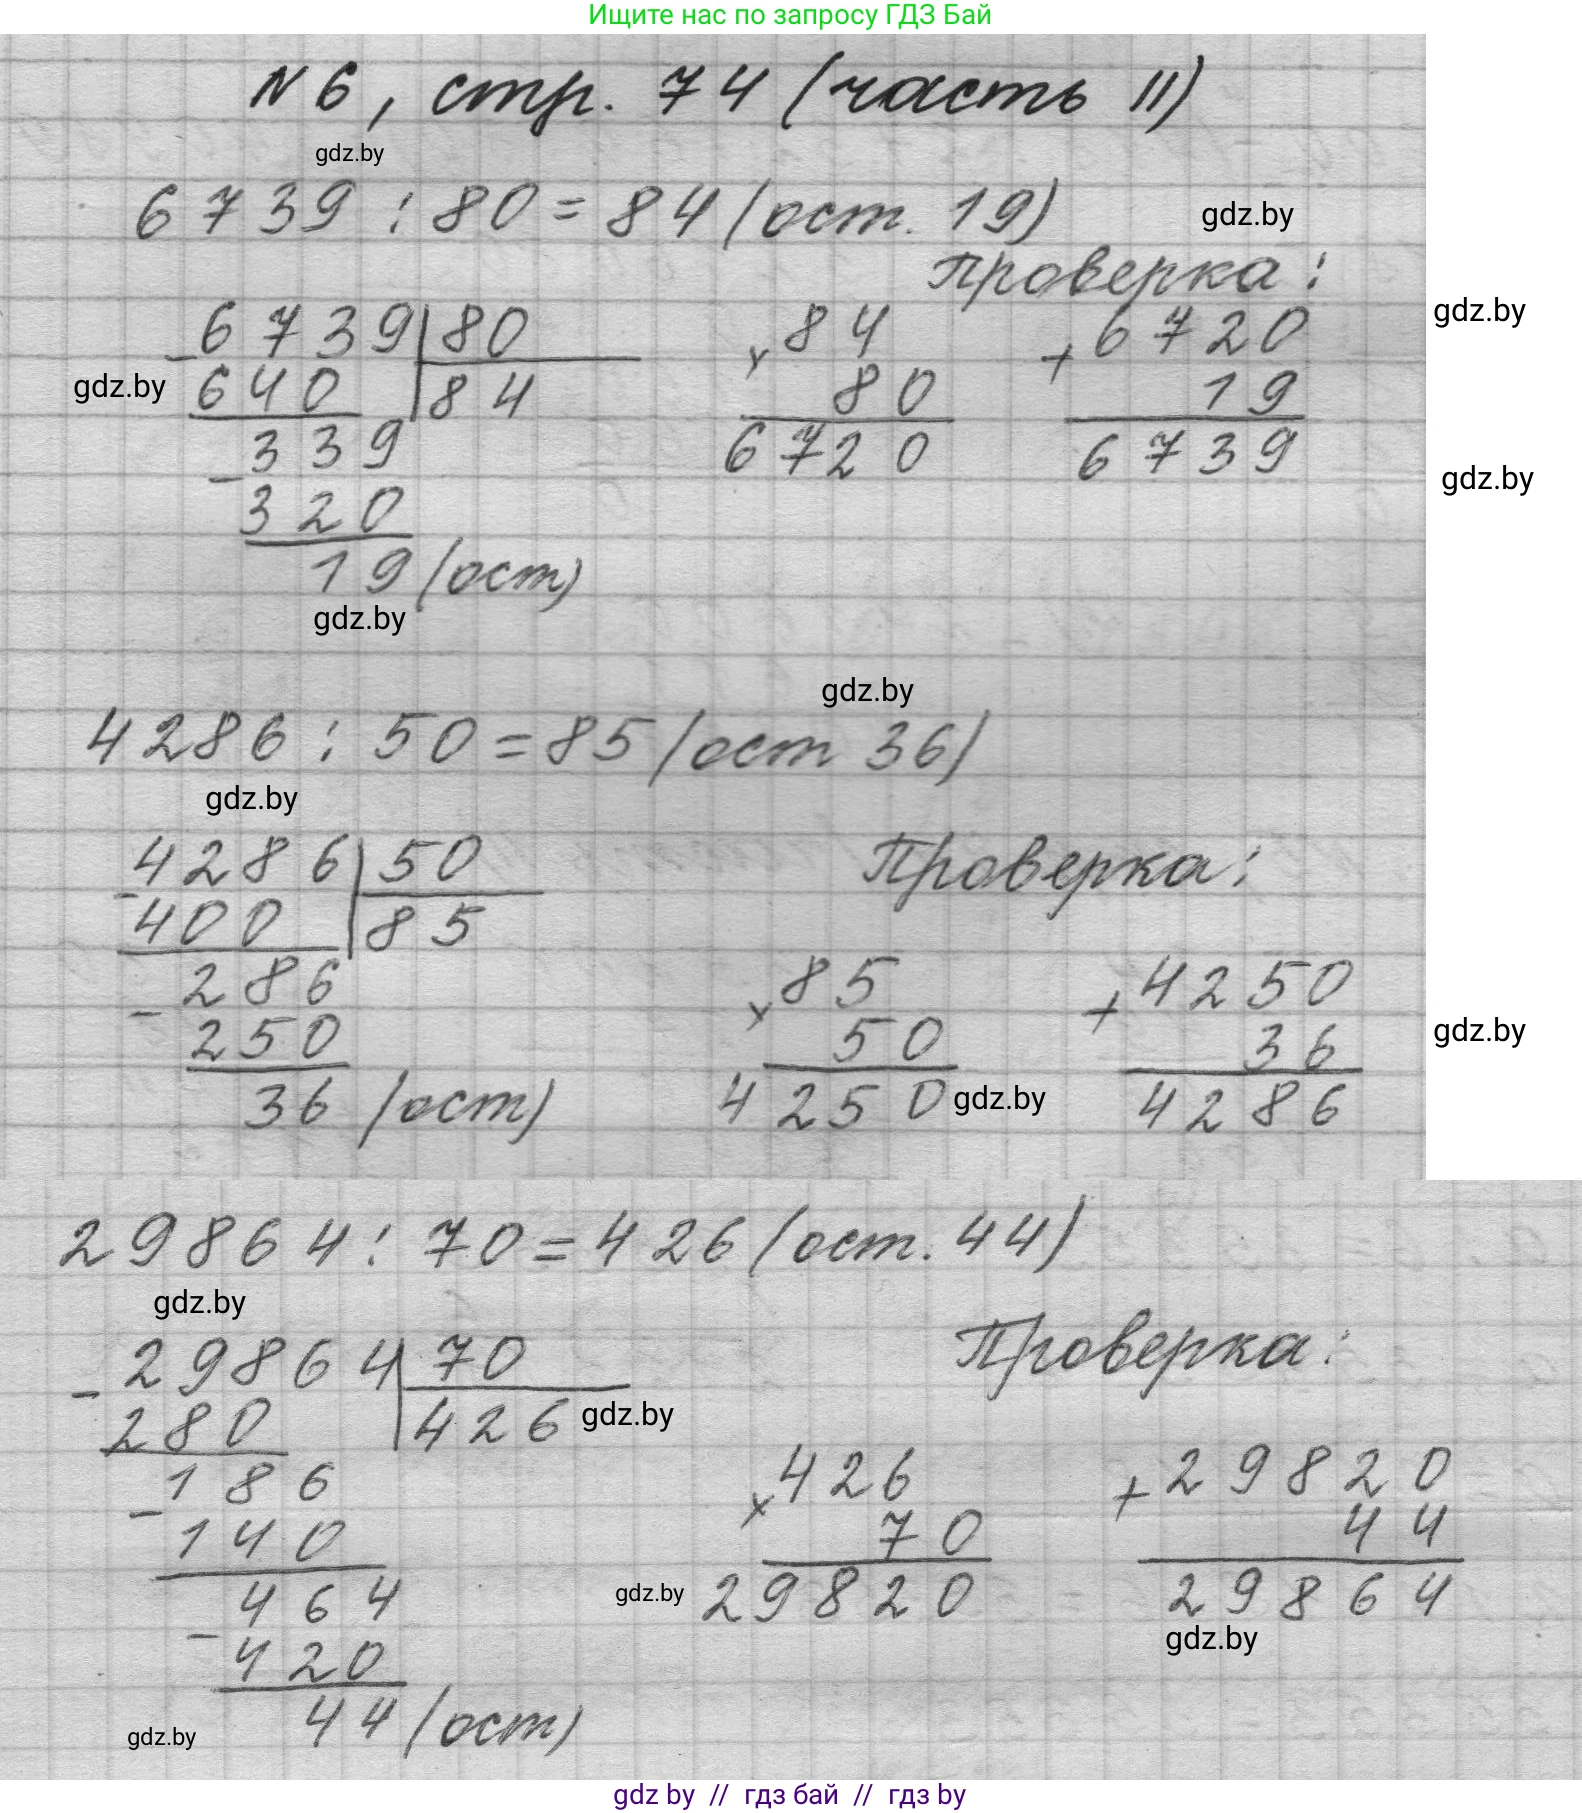 Ищите нас по запросу ГДЗ Бай
N 6, стр. 74 (часть II)
gdz.by
6739 : 80 = 84 (ост. 19)
gdz.by
Проверка:
gdz.by
6739 | 80
- 640 | 84
gdz.by
339
- 320
19 (ост)
gdz.by
84
x 80
6720
6720
+ 19
6739
gdz.by
gdz.by
4286 : 50 = 85 (ост 36)
gdz.by
4286 | 50
- 400 | 85
286
- 250
36 (ост)
Проверка:
85
x 50
4250
gdz.by
4250
+ 36
4286
gdz.by
29864 : 70 = 426 (ост. 44)
gdz.by
Проверка:
29864 | 70
- 280 | 426
gdz.by
186
- 140
464
- 420
44 (ост)
gdz.by
426
x 70
29820
gdz.by
29820
+ 44
29864
gdz.by
gdz by // гдз бай // гдз by